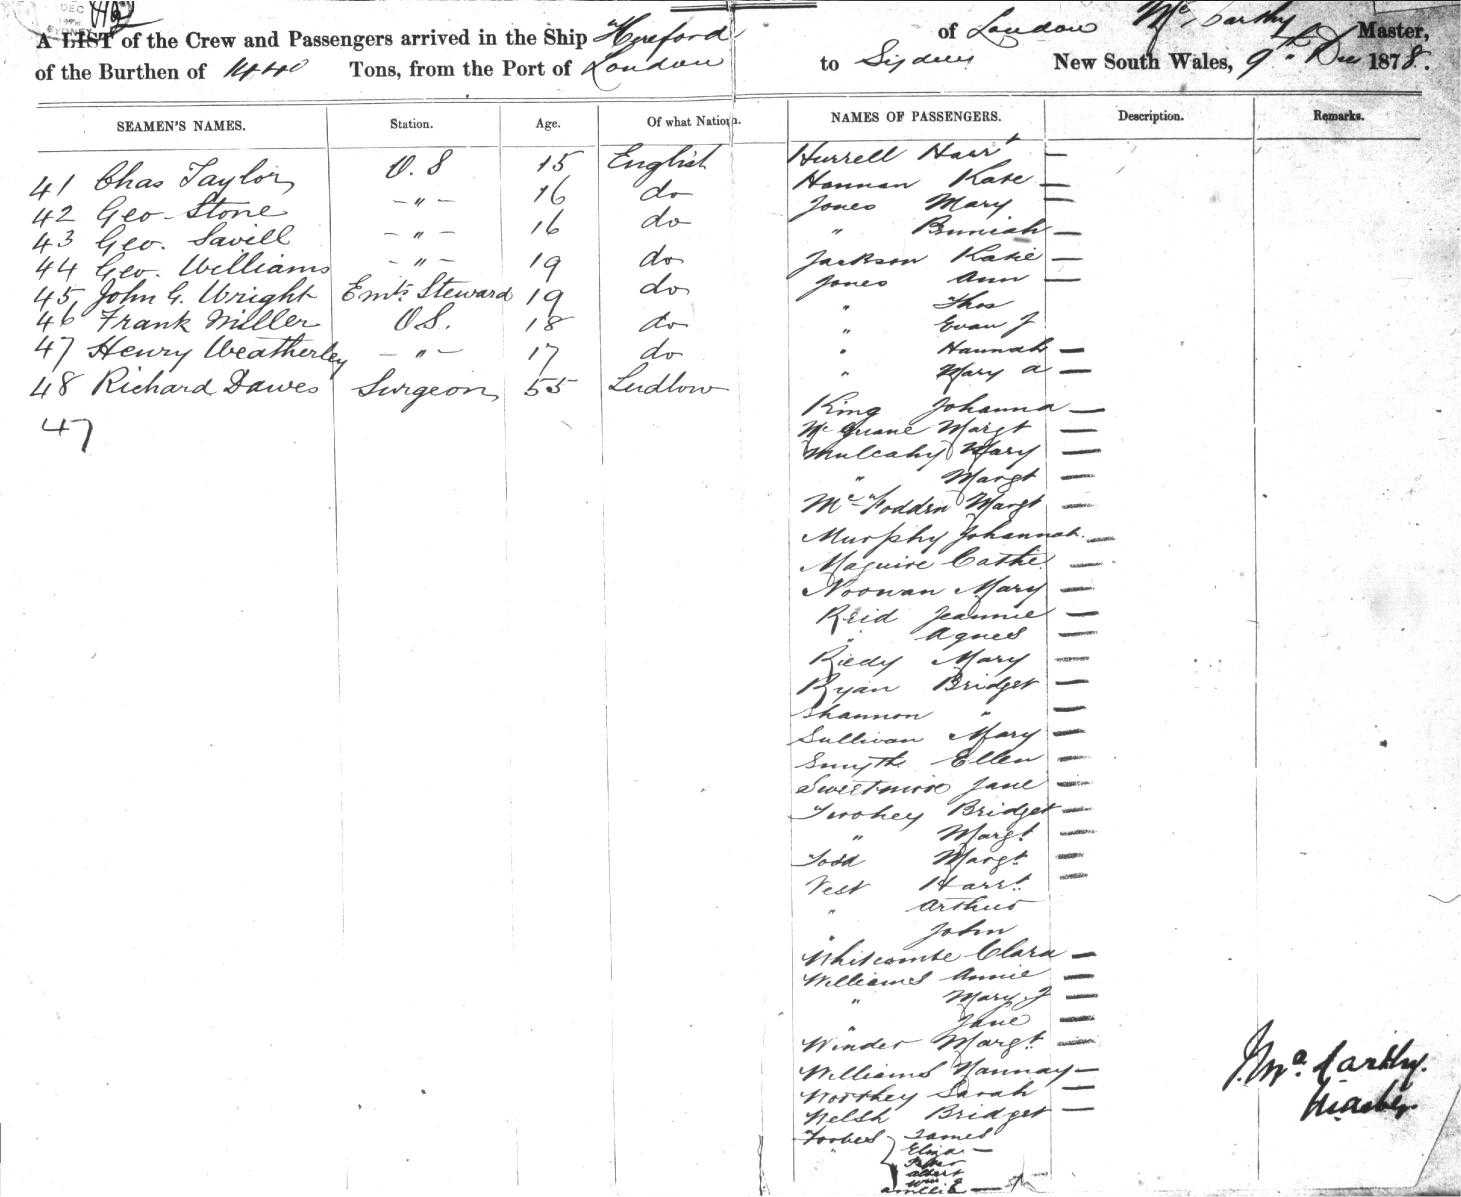 DEC
SYDNEY
A LIST of the Crew and Passengers arrived in the Ship Hereford of London Mc Carthy Master,
of the Burthen of Tons, from the Port of London to Sydney New South Wales, 9th Dec 1878.
SEAMEN'S NAMES. Station. Age. Of what Nation. NAMES OF PASSENGERS. Description. Remarks.
41 Chas Taylor O.S 15 English
42 Geo Stone — " — 16 do
43 Geo. Savill — " — 16 do
44 Geo. Williams — " — 19 do
45 John G. Wright Emts Steward 19 do
46 Frank Miller OS. 18 do
47 Henry Weatherley — " — 17 do
48 Richard Dawes Surgeon 55 Ludlow
47
Hurrell Harrt —
Hannan Kate —
Jones Mary —
" —
Jackson Katie —
Jones Ann —
" Thos
" Evan J
" Hannah —
" Mary A —
King Johanna —
Margt —
Mulcahy Mary —
" Margt —
McFoddin Margt —
Murphy Johannah —
Maguire Cathe —
Noonan Mary —
Reid Jeannie —
" Agnes —
Riedy Mary —
Ryan Bridget —
Shannon " —
Sullivan Mary —
Smythe Ellen —
Sweetmore Jane —
Twohey Bridget —
" Margt —
Todd Margt —
Vest Harrt. —
" Arthur
" John
Whitcombe Clara —
Williams Annie —
" Mary J —
" Jane —
Winder Margt —
Williams Hannay —
Worthey Sarah —
Welsh Bridget —
Forbes James
" Eliza —
Peter
Albert
Wm E
Amelia —
J. McCarthy.
Master